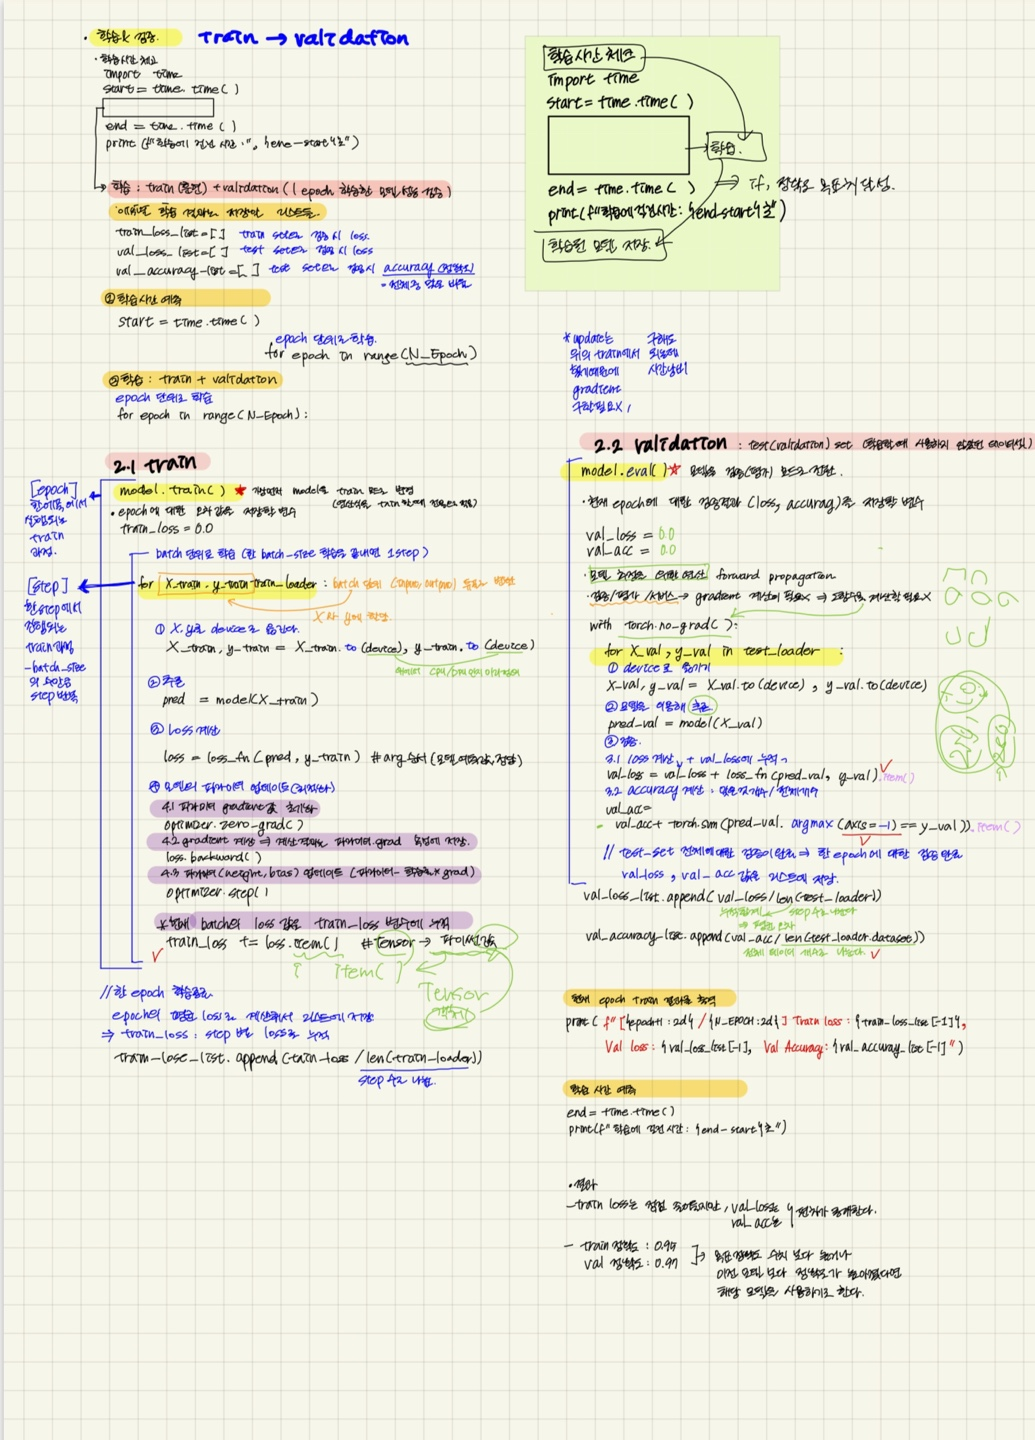 · 학습 & 검증
train → validation
· 학습시간 체크
import time
start = time.time( )
end = time.time( )
print (f"학습에 걸린 시간 :", {end-start}초")
학습 : train(훈련) + validation ( 1 epoch 학습한 모델 성능 검증 )
에폭별 학습 결과를 저장할 리스트들.
train_loss_list = [ ] train set으로 검증 시 loss.
val_loss_list = [ ] test set으로 검증 시 loss
val_accuracy_list = [ ] test set으로 검증시 accuracy (정확도)
- 전체 중 맞은 비율
① 학습시간 예측
start = time.time( )
epoch 단위로 학습.
for epoch in range(N_Epoch)
② 학습 : train + validation
epoch 단위로 학습
for epoch in range(N_Epoch) :
학습시간 체크
import time
start = time.time( )
학습.
end = time.time( )
⇒ 다, 정확도 목표치 달성.
print(f"학습에 걸린시간 : {end-start}초")
학습된 모델 저장.
* update는
위의 train에서
했기때문에
gradient
구할필요X /
구해도
되는데
시간낭비
2.1 train
[epoch]
한 에폭에서
실행되는
train
과정.
model.train( ) ★ 가장먼저 model을 train 모드로 변경
· epoch에 대한 오차 값을 저장할 변수
train_loss = 0.0
batch 단위로 학습 (한 batch-size 학습을 끝내면 1step)
[step]
한 step에서
진행되는
train과정
- batch_size
의 수만큼
step 반복
for X_train, y_train train_loader : batch 단위 (input, output) 튜플로 반환
X와 y에 할당.
① X, y를 device로 옮긴다.
X_train, y_train = X_train.to (device), y_train.to (device)
② 추론
pred = model(X_train)
③ Loss 계산
loss = loss_fn (pred, y_train) #arg 순서 (모델 예측값, 정답)
④ 모델의 파라미터 업데이트(최적화)
4.1 파라미터 gradient값 초기화
optimizer.zero-grad( )
4.2 gradient 계산 ⇒ 계산 결과는 파라미터.grad 속성에 저장.
loss.backward( )
4.3 파라미터(weight, bias) 업데이트 (파라미터 - 학습률 × grad)
optimizer.step( )
*현재 batch의 loss 값을 train_loss 변수에 누적
train_loss += loss.item( ) #Tensor → 파이썬 값
item( )
Tensor
//한 epoch 학습종료
epoch의 평균 loss를 계산해서 리스트에 저장
⇒ train_loss : step 별 loss로 누적
train-loss-list.append (tain-loss / len(train-loader))
step 수로 나눔.
2.2 validation : test(validation) set (학습할 때 사용하지 않았던 데이터셋)
model.eval( ) ★ 모델을 검증(평가) 모드로 전환.
· 현재 epoch에 대한 검증결과 (loss, accuracy)를 저장할 변수
val_loss = 0.0
val_acc = 0.0
· 모델 최적을 위한 연산 forward propagation
· 검증/평가/서비스 → gradient 계산이 필요X ⇒ 도함수를 계산할 필요X
with torch.no-grad( ) :
for X_val, y_val in test_loader :
① device로 옮기기
X_val, y_val = X_val.to(device) , y_val.to(device)
② 모델을 이용해 추론
pred_val = model(X_val)
③ 검증.
3.1 loss 계산 + val_loss에 누적
val-loss = val_loss + loss_fn(pred-val, y_val).item( )
3.2 accuracy 계산 : 맞은것개수 / 전체개수
val_acc=
val_acc + torch.sum (pred_val.argmax (axis = -1) == y_val)).item( )
// test-set 전체에 대한 검증이 완료 ⇒ 한 epoch에 대한 검증 완료
val_loss , val_acc 값을 리스트에 저장.
val_loss_list.append( val_loss/len(test_loader))
step 수로 나눈다
val_accuracy_list.append (val_acc/ len(test_loader.dataset))
전체 데이터 개수로 나눈다.
현재 epoch train 결과를 출력
print ( f" [{epoch+1:2d} / {N_EPOCH:2d} ] Train loss : {train_loss_list [-1]},
Val loss : {val_loss_list[-1], Val Accuracy: {val_accuracy_list [-1]" )
학습 시간 예측
end = time.time( )
print(f" 학습에 걸린시간 : {end-start}초")
· 결과
- train loss는 점점 줄어들지만, val_loss는
val_acc는
- train 정확도 : 0.95
val 정확도 : 0.97
목표 정확도 수치 보다 높거나
이전 모델 보다 정확도가 높아졌다면
해당 모델을 사용하기로 한다.